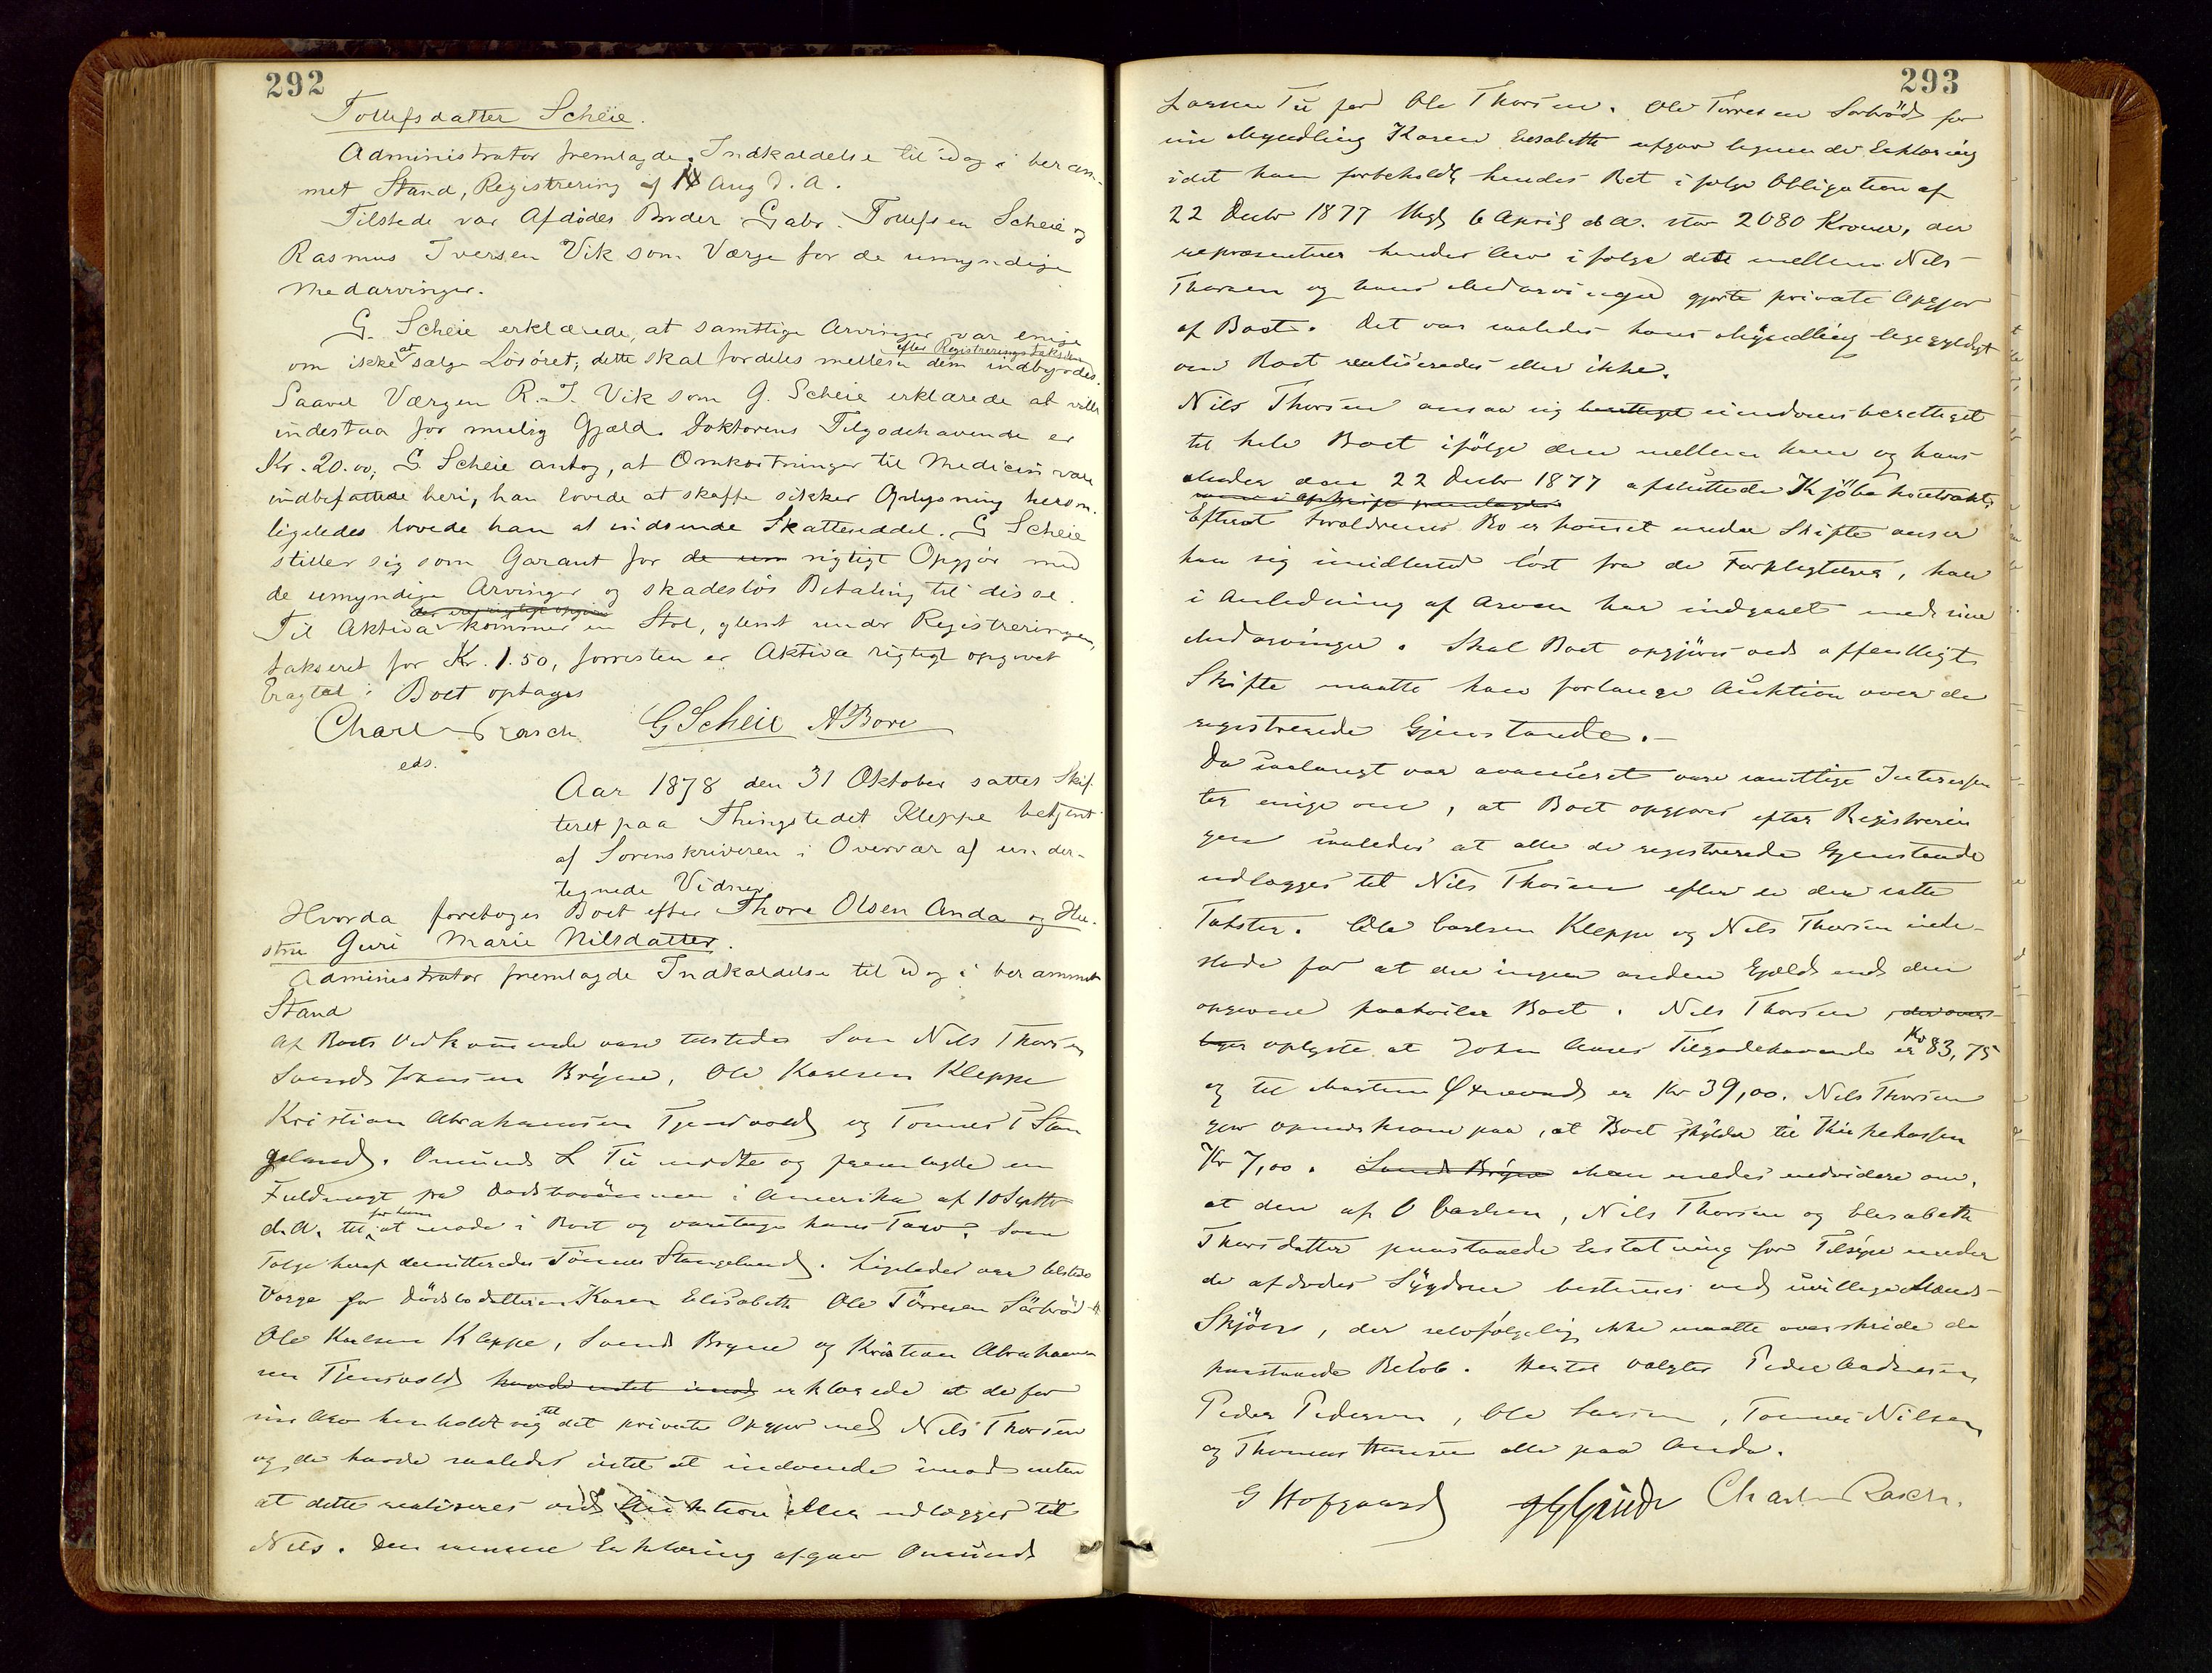 292
Tollefsdatter Scheie.
Administrator fremlagde Indkaldelse til idag i beram-
met Stand, Registrering af Aug d. A.
Tilstede var Afdødes Broder Gabr. Tollefsen Scheie og
Rasmus Iversen Vik som Værge for de umyndige
Medarvinger.
G. Scheie erklærede, at samtlige Arvinger var enige
efter Registreringstaksten
om ikke at sælge Løsøret; dette skal fordeles mellem dem indbyrdes.
Saavel Værgen R. I. Vik som G. Scheie erklærede at ville
indestaa for mulig Gjæld. Doktorens Tilgodehavende er
Kr. 20.00; G. Scheie antog, at Omkostninger til Medicin var
indbefattede heri, han lovede at skaffe sikker Oplysning herom.
ligeledes lovede han at indsende Skatteseddel. G Scheie
stiller sig som Garant for de um rigtigt Opgjør med
de umyndige Arvinger og skadesløs Betaling til disse.
Til Aktiva kommer en Stol, glemt under Registreringen,
takseret for Kr. 1.50, forresten er Aktiva rigtigt opgivet
Eragtet: Boet optages
Charles Rasch G Scheie A Bore
eds.
Aar 1878 den 31 Oktober sattes Skif-
teret paa Thingstedet Kleppe betjent
af Sorenskriveren i Overvær af under-
tegnede Vidner
Hvorda foretoges Boet efter Thore Olsen Anda og Hu-
stru Guri Marie Nilsdatter.
Administrator fremlagde Indkaldelse til idag i berammet
Stand
Af Boets Vedkommende vare tilstede Søn Nils Thorsen
Svend Johnsen Bryne, Ole Karlsen Kleppe
Kristian Abrahamsen Tjensvold og Tønnes T Stan
geland. Omund L Tu mødte og fremlagde en
Fuldmagt fra Dødsbosønnen i Amerika af 10 Septbr
for ham
d. A. til at møde i Boet og varetage hans Tarv; som
Følge heraf demitteredes Tönnes Stangeland. Ligeledes var tilstede
Værge for Dødsbodatteren Karen Elisabeth Ole Törresen Sörbröd
Ole Karlsen Kleppe, Svend Bryne og Kristian Abraham
sen Tjensvold havde intet imod erklærede at de for
sin Arv henholdt sig til det private Opgjør med Nils Thorsen
og de havde saaledes intet at indvende imod enten
at dette realiseres ved Auktion eller udlægges til
Nils. Den samme Erklæring afgav Omund
293
Larsen Tu for Ole Thorsen. Ole Törresen Sörbröd for
sin Myndling Karen Elisabeth afgav lignende Erklæring
idet han forbeholdt hendes Ret i følge Obligation af
22 Decbr 1877 thgl 6 April d A. stor 2080 Kroner, der
repræsenterer hendes Arv i følge dete mellem Nils
Thorsen og hans Medarvinger gjorte private Opgjør
af Boet. Det var saaledes hans Myndling ligegyldigt
om Boet realiseredes eller ikke.
Nils Thorsen ansaa sig berettiget eiendomsberettiget
til hele Boet ifölge den mellem ham og hans
Moder den 22 Decbr 1877 afsluttede Kjöbekontrakt
Efterat Forældrenes Bo er kommet under Skifte anser
han sig imidlertid löst fra de Forpligtelser, han
i Anledning af Arven har indgaaet med sine
Medarvinger. Skal Boet opgjöres ved offentligt
Skifte maatte han forlange Auktion over de
registrerede Gjenstande.-
Da saalangt var avanceret vare samtlige Interessen
ter enige om, at Boet opgjøres efter Registrerin
gen saaledes at alle de registrerede Gjenstande
udlægges til Nils Thorsen efter de der satte
Takster. Ole Carlsen Kleppe og Nils Thorsen inde-
stode for at der ingen anden Gjæld end den
opgivne paahviler Boet. Nils Thorsen
oplyste at John Aases Tilgodehavende er Kr 83,75
og til Morten Öxnevad er Kr 39,00. Nils Thorsen
gav opmærksom paa, at Boet skylder til Kirkekassen
Kr 7,00. Svend Bryne Man enedes endvidere om,
at den af O Carlsen, Nils Thorsen og Elisabeth
Thorsdatter paastaaede Erstatning for Tilsyn under
de afdødes Sygdom bestemmes ved uvillige Mænds
Skjön, der selvfølgelig ikke maatte overskride de
paastaaede Beløb. Hertil valgtes Peder Andersen,
Peder Pedersen, Ole Larsen, Tønnes Nilsen
og Thomas Hansen alle paa Anda.
G Hofgaard Charles Rasch.